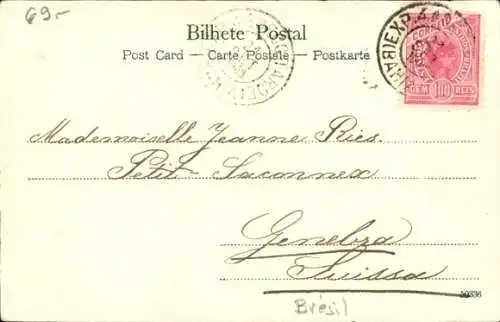 69.-
Bilhete Postal
Post Card — Carte Postale — Postkarte
CEM 100 REIS
Mademoiselle Jeanne Ries.
Petit-Saconnex
Genebra
Suissa
10336
Brésil